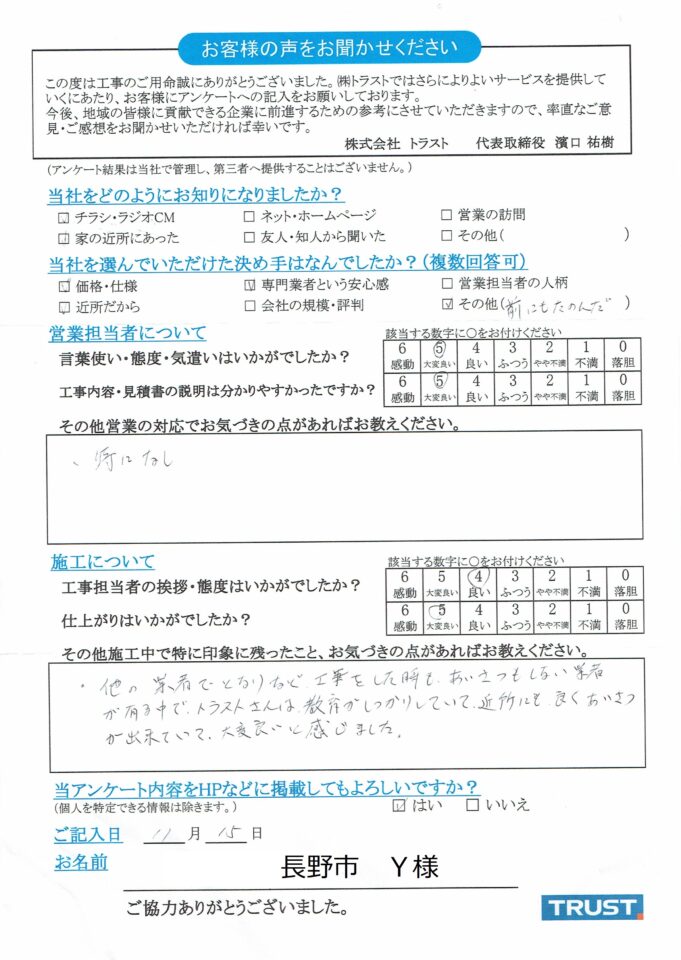 お客様の声をお聞かせください
この度は工事のご用命誠にありがとうございました。㈱トラストではさらによりよいサービスを提供して
いくにあたり、お客様にアンケートへの記入をお願いしております。
今後、地域の皆様に貢献できる企業に前進するための参考にさせていただきますので、率直なご意
見・ご感想をお聞かせいただければ幸いです。
株式会社 トラスト 代表取締役 濱口 祐樹
(アンケート結果は当社で管理し、第三者へ提供することはございません。)
当社をどのようにお知りになりましたか?
☑ チラシ・ラジオCM □ ネット・ホームページ □ 営業の訪問
☑ 家の近所にあった □ 友人・知人から聞いた □ その他( )
当社を選んでいただけた決め手はなんでしたか?(複数回答可)
☑ 価格・仕様 ☑ 専門業者という安心感 □ 営業担当者の人柄
☑ 近所だから □ 会社の規模・評判 ☑ その他(前にもたのんだ)
営業担当者について 該当する数字に○をお付けください
言葉使い・態度・気遣いはいかがでしたか? 6 ⑤ 4 3 2 1 0
感動 大変良い 良い ふつう やや不満 不満 落胆
工事内容・見積書の説明は分かりやすかったですか? 6 ⑤ 4 3 2 1 0
感動 大変良い 良い ふつう やや不満 不満 落胆
その他営業の対応でお気づきの点があればお教えください。
、特になし
施工について 該当する数字に○をお付けください
工事担当者の挨拶・態度はいかがでしたか? 6 5 ④ 3 2 1 0
感動 大変良い 良い ふつう やや不満 不満 落胆
仕上がりはいかがでしたか? 6 ⑤ 4 3 2 1 0
感動 大変良い 良い ふつう やや不満 不満 落胆
その他施工中で特に印象に残ったこと、お気づきの点があればお教えください。
・他の業者でとなりなど、工事をした時も、あいさつもしない業者
が有る中で、トラストさんは、教育がしっかりしていて、近所にも、良くあいさつ
が出来ていて、大変良いと感じました。
当アンケート内容をHPなどに掲載してもよろしいですか?
(個人を特定できる情報は除きます。) ☑ はい □ いいえ
ご記入日 11 月 15 日
お名前 長野市 Y様
ご協力ありがとうございました。
TRUST.